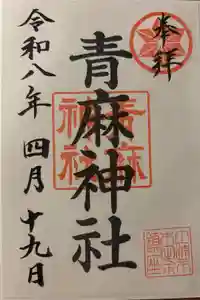 奉拝
青麻神社
青麻
神社
令和八年 四月 十九日